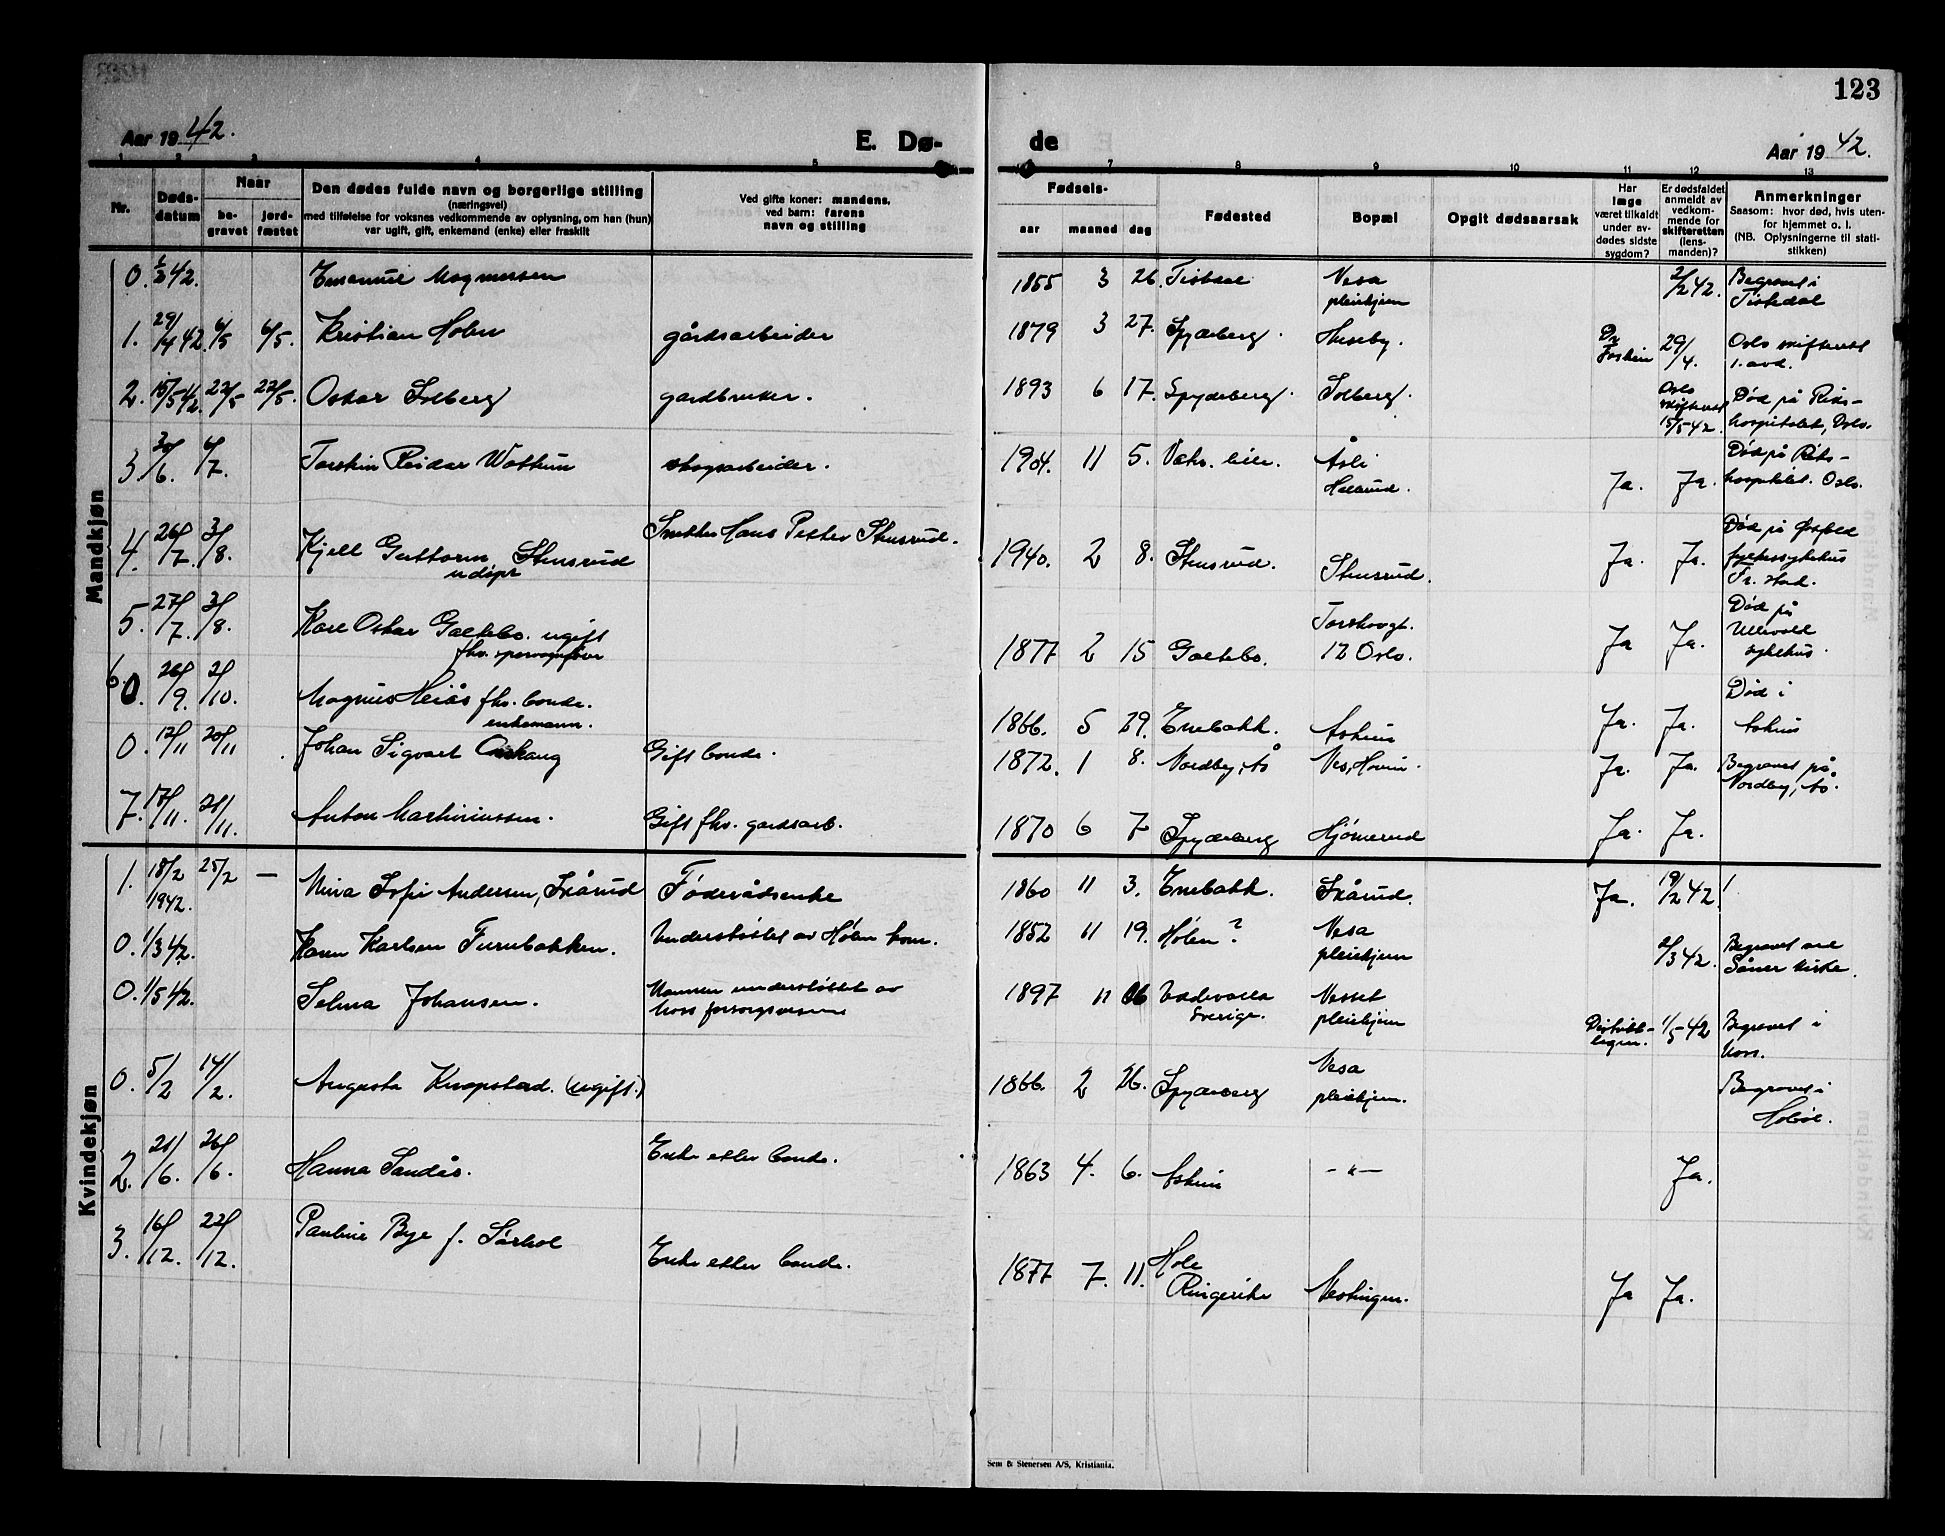 123
Aar 1942.
E. Dø-
de
Aar 1942.
1 2 3 4 5 6 7 8 9 10 11 12 13
Nr.
Døds-
datum
Naar
be-
gravet
jord-
fæstet
Den dødes fulde navn og borgerlige stilling
(næringsvei)
med tilføielse for voksnes vedkommende av oplysning, om han (hun)
var ugift, gift, enkemand (enke) eller fraskilt
Ved gifte koner: mandens,
ved barn: farens
navn og stilling
Fødsels-
aar maaned dag
Fødested
Bopæl
Opgit dødsaarsak
Har
læge
været tilkaldt
under av-
dødes sidste
sygdom?
Er dødsfaldet
anmeldt av
vedkom-
mende for
skifteretten
(lens-
manden)?
Anmerkninger
Saasom: hvor død, hvis uten-
for hjemmet o. l.
(NB. Oplysningerne til stati-
stikken)
Mandkjøn
0. 42. Emanuel Magnussen 1855 3 26. Tistedal Vesa pleiehjem 2/2 42. Begravet i Tistedal
1. 29/4 42. 6/5 6/5. Kristian Holen gårdsarbeider 1879 3 27. Spydeberg. Huseby. Dr 29/4. Oslo skifterett 1. avd.
2. 15/5 42. 22/5 22/5. Oskar Solberg gardbruker. 1893 6 17. Spydeberg. Solberg. Oslo skifterett 15/5 42. Død på Riks-
hospitalet, Oslo.
3. 30/6. 6/7. Torstein Reidar skogsarbeider. 1904. 11 5. Ja. Ja. Død på Riks-
hospitalet. Oslo.
4. 26/7. 3/8. Kjell Guttorm Stensrud Smed Hans Petter Stensrud. 1940. 2 8. Stensrud. Stensrud. Ja. Ja. Død på Østfold fylkessykehus Fr. stad.
5. 27/7. 3/8. Karl Oskar Galtebo. ugift
fhv. sporvognsfører 1877 2 15 Galtebo. 12 Oslo. Ja Ja. Død på Ullevold sykehus.
6. 0. 26/9. 2/10. Magnus Heiås fhv. bonde.
enkemann. 1866. 5 29. Enebakk. Askim Ja. Ja. Død i Askim
0. 12/11 20/11. Johan Sigvart Gift bonde. 1872. 1 8. Nordby, Ås Ves, Hovin. Ja. Ja. Begravet på Nordby, Ås.
7. 17/11. 21/11. Anton Martiniussen. Gift fhv. gardsarb. 1870 6 7 Spydeberg Hjømerud Ja. Ja.
Kvindekjøn
1. 18/2 1942. 25/2 — Mina Sofie Andersen, Skårud Føderådsenke 1860 11 3. Enebakk. Skårud. Ja. 19/2 42.
0. 1/3 42. Karen Karlsen Furubakken. Understøttet av Hølen kom. 1852 11 19. Hølen? Vesa pleiehjem 2/3 42. Begravet ved Såner kirke.
0. 1/5 42. Selma Johansen. Mannen understøttet av
Moss forsorgsvesen 1897 11 Uddevalla Sverige. Vesset pleiehjem 1/5 42 Begravet i Moss.
0. 5/2 14/2. Augusta Knapstad. (ugift.) 1866. 2 26. Spydeberg Vesa pleiehjem. Begravet i Hobøl.
2. 21/6. 26/6. Hanna Sandås. Enke etter bonde. 1863 4. 6. Askim — " — Ja.
3. 16/12. 22/12. Pauline Bye f. Sørhol Enke etter bonde. 1877 7. 11. Hole
Ringerike Vestingen. Ja Ja.
Sem & Stenersen A/S, Kristiania.